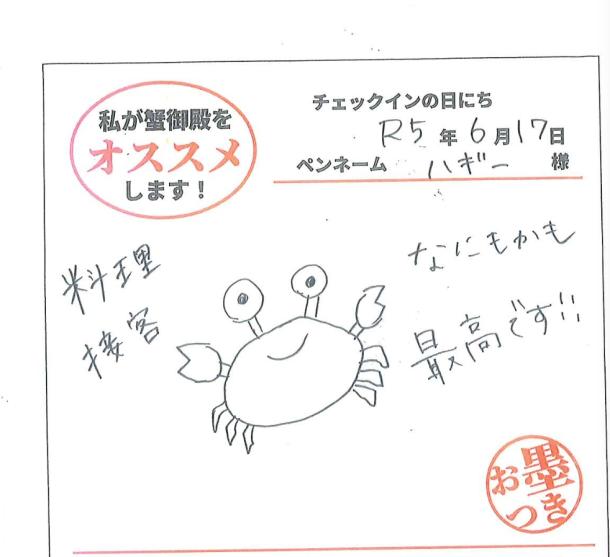 私が蟹御殿を
オススメ
します！
チェックインの日にち
R5年6月17日
ペンネーム ハギー 様
料理
接客
なにもかも
最高です!!
お墨
つき